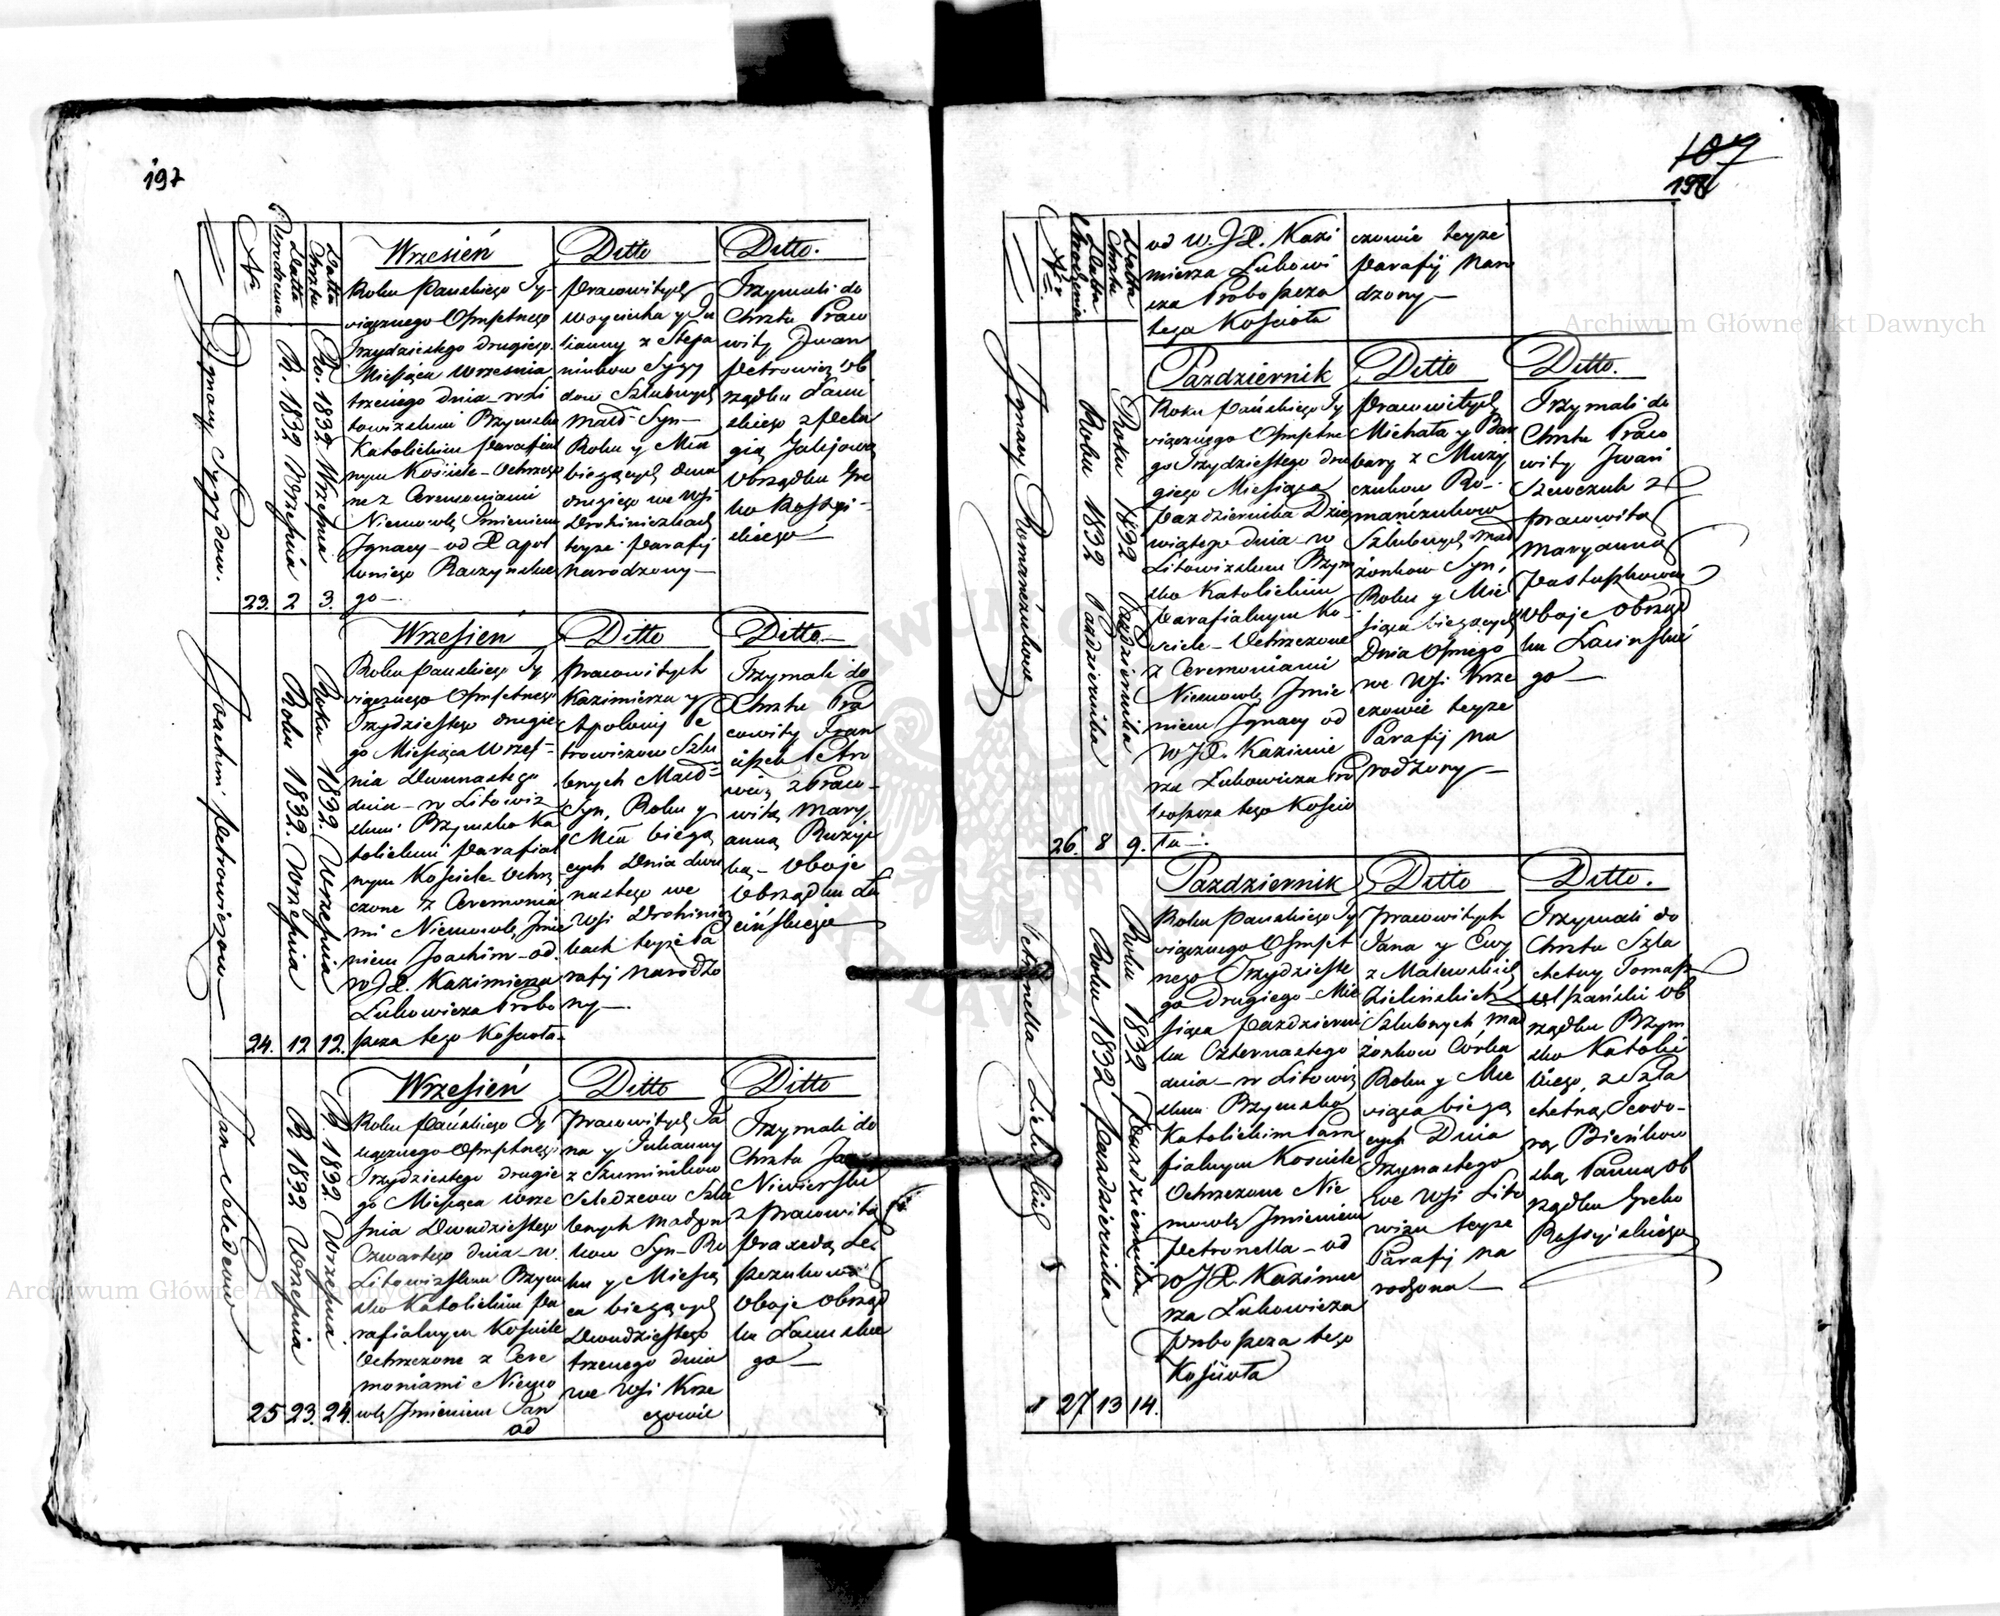 197
Nr
Datta Urodzenia
Datta Chrztu
Wrzesień
Ditto
Ditto.
Ignacy Syzydow.
R. 1832 Wrzesnia
Ro. 1832 Wrzesnia
23.
2
3.
Roku Panskiego Ty-
siącznego Osmsetnego
Trzydziestego drugiego
Miesiąca Wrzesnia
trzeciego dnia - w Li
towizskim Rzymsko
Katolickim Parafial
nym Kościele - Ochrzczo
ne z Ceremoniami
Niemowlę Imieniem
Ignacy - od X Apol
loniego Raczynskie
go -
Pracowitych
Woyciecha y Ju
lianny z Stepa
niukow Syzy
dow Szlubnych
Małd: Syn -
Roku y Mca
bieżących dnia
drugiego we Wsi
Drohiniczkach
teyże Parafij
Narodzony -
Trzymali do
Chrztu Praco
wity Iwan
Petrowicz ob
rządku Łaciń
skiego z Pela
gią
Obrządku Gre
ko Rossyi-
skiego
Wrzesień
Ditto
Ditto -
Joachim Petrowiczow
Roku 1832. Wrzesnia
Roku 1832. Wrzesnia
24.
12
12.
Roku Panskiego Ty
siącznego Osmsetnego
Trzydziestego drugie
go Miesiąca Wrześ-
nia Dwunastego
dnia - w Litowiz
skim Rzymsko Ka
tolickim Parafial
nym Kościele - Ochrz
czone z Ceremonia
mi Niemowlę Imie
niem Joachim - od
W JX. Kazimierza
Łukowicza Probo
szcza tego Kościoła -
Pracowitych
Kazimierza y
Apolonij Pe
trowiczow Szlu
bnych Małd:
Syn, Roku y
Mca bieżą
cych Dnia dwu
nastego we
Wsi Drohinicz
kach teyże Pa
rafij Narodzo
ny -
Trzymali do
Chrztu Pra
cowity Fran
ciszek Petro
wicz z Praco-
witą Mary
anną
ką - Oboje
Obrządku Ła
cińskiego
Wrzesień
Ditto
Ditto
Jan Seledcow
R 1832 Wrzesnia
R 1832 Wrzesnia
25
23.
24.
Roku Pańskiego Ty
siącznego Osmsetnego
Trzydziestego drugie
go Miesiąca Wrze
snia Dwudziestego
Czwartego dnia - w.
Litowizskim Rzym
sko Katolickim Pa
rafialnym Kościele
Ochrzczone z Cere
moniami Niemo
wlę Imieniem Jan
od
Pracowitych Ja
na y Julianny
z Szuminikow
Seledcow Szlu
bnych Małżon
kow Syn - Ro
ku y Miesią
ca bieżących
Dwudziestego
trzeciego dnia
we Wsi Krze
czowie
Trzymali do
Chrztu
Niwierski
z Pracowitą
Praxedą Le
szczukową
Oboje Obrząd
ku Łacinskie
go -
107
198
Nr
Datta Urodzenia
Datta Chrztu
od W. JX. Kazi
mierza Łukowi
cza Proboszcza
tego Kościoła
czowie teyże
Parafij Naro
dzony -
Pazdziernik
Ditto
Ditto.
Ignacy Romańczukow
Roku 1832 Pazdziernika
Roku 1832 Pazdziernika
26.
8
9.
Roku Pańskiego Ty
siącznego Osmsetne
go Trzydziestego dru
giego Miesiąca
Pazdziernika Dzie
wiątego dnia - w
Litowizskim Rzym
sko Katolickim
Parafialnym Ko-
sciele - Ochrzczone
z Ceremoniami
Niemowlę Imie
niem Ignacy od
W JX. Kazimie
rza Łukowicza Pro
boszcza tego Kościo
ła -.
Pracowitych
Michała y Bar
bary z Muzy
czukow Ro-
manczukow
Szlubnych Mał
żonkow Syn,
Roku y Mie
siąca bieżących
Dnia Osmego
we Wsi Krze
czowie teyże
Parafij Na
rodzony -
Trzymali do
Chrztu Praco
wity Iwan
Szewczuk z
Pracowitą
Maryanną
Pastuszkową
Oboje Obrząd
ku Łacinskie
go -
Pazdziernik
Ditto
Ditto.
Petronella Zielińskich
Roku 1832 Pazdziernika
Roku 1832 Pazdziernika
27
13
14.
Roku Panskiego Ty
siącznego Osmset
nego Trzydzieste
go drugiego Mie
siąca Pazdzierni
ka Czternastego
dnia - w Litowiz
skim Rzymsko
Katolickim Para
fialnym Kościele
Ochrzczone Nie
mowlę Imieniem
Petronella - od
W JX. Kazimie
rza Łukowicza
Proboszcza tego
Kościoła
Pracowitych
Jana y Ewy
z Malewskich
Zielinskich
Szlubnych Mał
żonkow Córka
Roku y Mie
siąca bieżą
cych Dnia
Trzynastego
we Wsi Lito
wizu teyże
Parafij Na
rodzona -
Trzymali do
Chrztu Szla
chetny Tomasz
ob
rządku Rzym
sko Katolic
kiego, z Szla
chetną Teodo-
rą Bieńkow
ską Panną ob
rządku Greko
Rossyiskiego
Archiwum Główne Akt Dawnych
Archiwum Główne Akt Dawnych